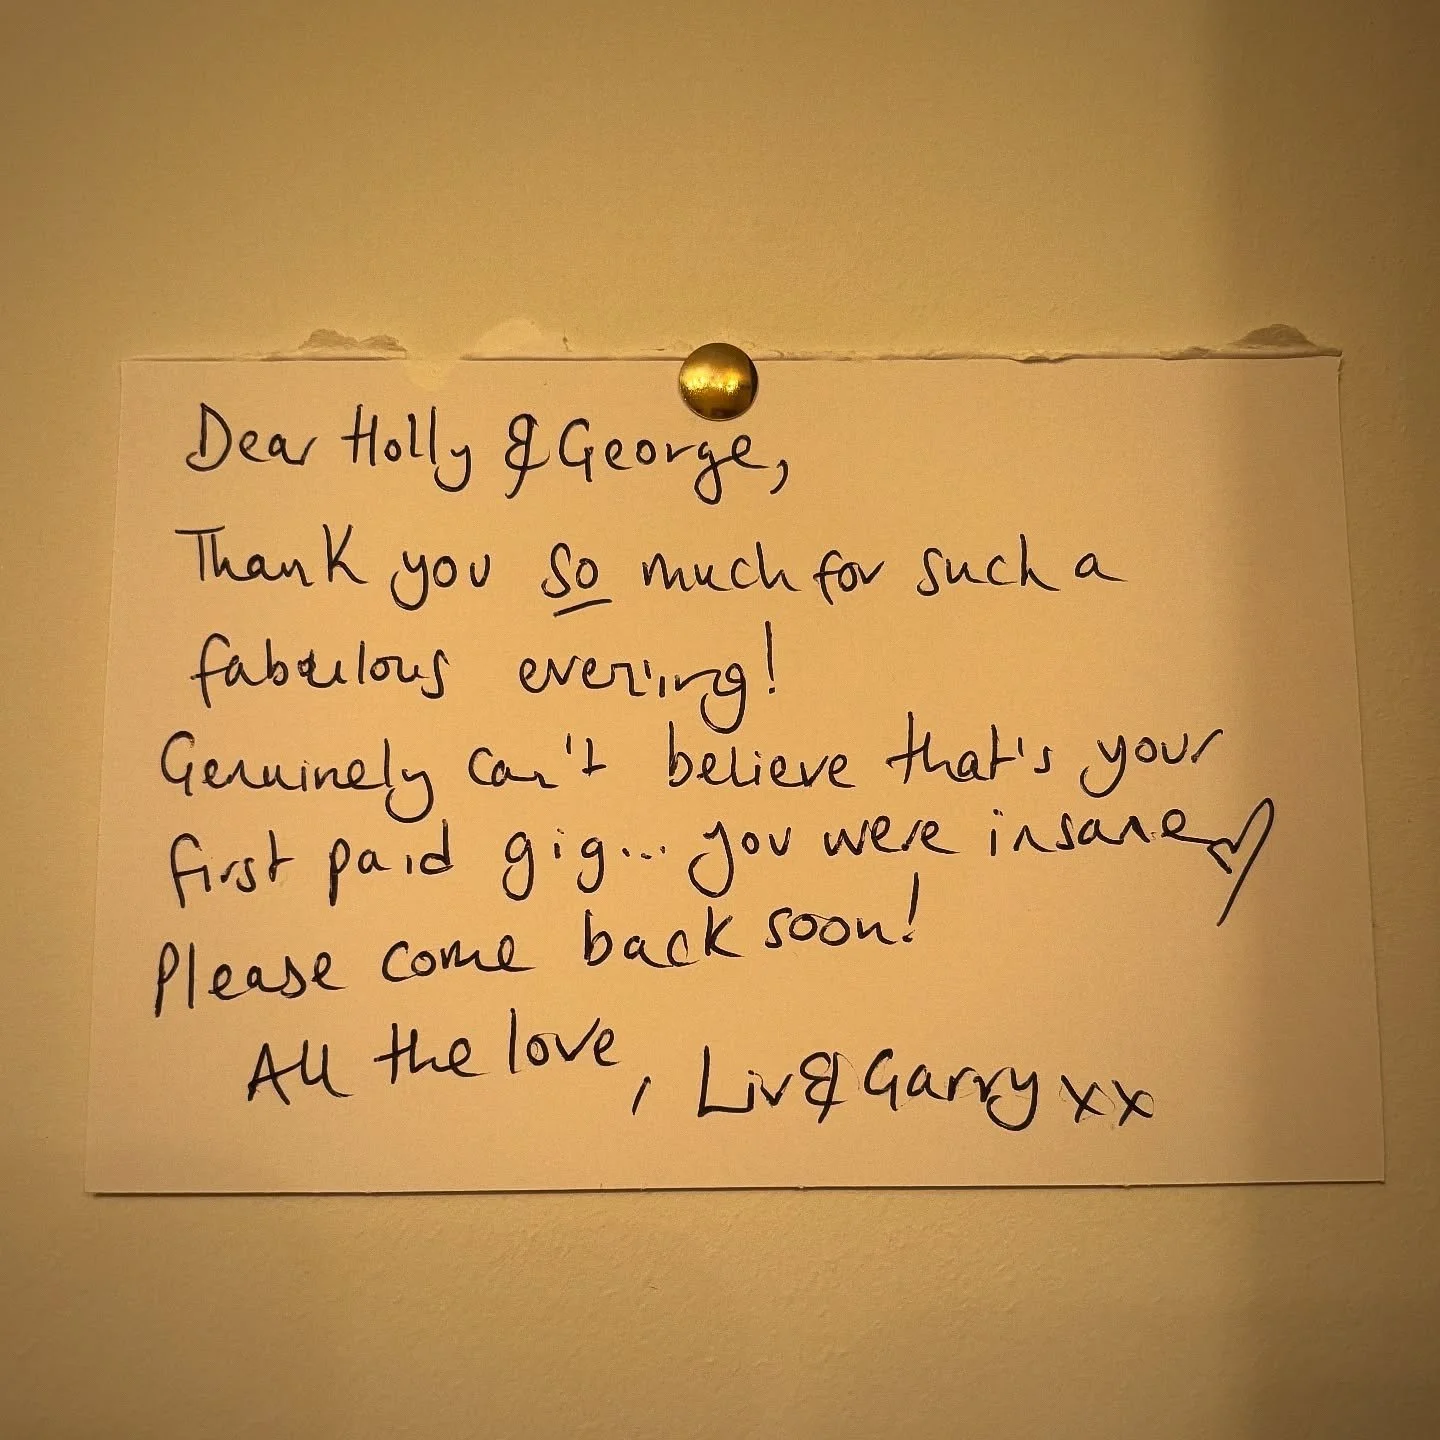 Dear Holly & George,
Thank you so much for such a
fabulous evening!
Genuinely can't believe that's your
first paid gig... you were insane
Please come back soon!
All the love, Liv & Garry xx